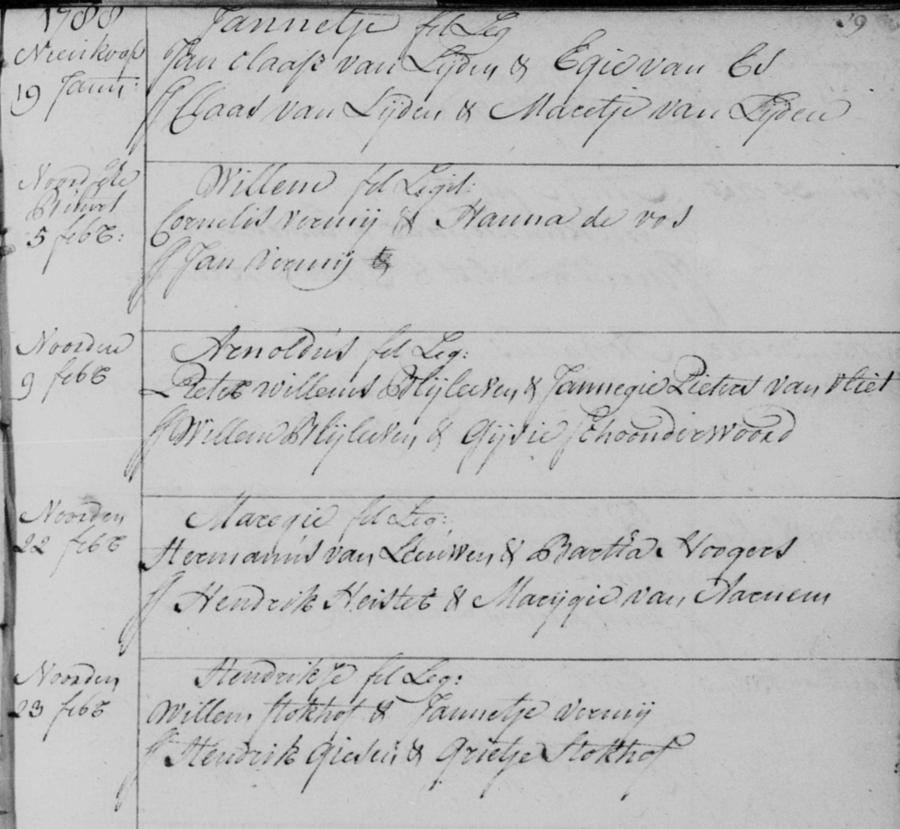 1788
29
Nieuwkoop
19 Janu:
Jannetje fil Leg
Jan Claasse van Lijden & Egie van Es
ff Claas van Lijden & Maretje van Lijden
5 febr:
Willem fil Legit:
Cornelis vermij & Hanna de vos
ff Jan vermij &
Noorden
9 febr
Arnoldus fil Leg:
Pieter willems Blijleven & Jannegie Pieters van vliet
ff Willem Blijleven & Gijsie Schoonderwoord
Noorden
22 febr
Maregie fil Leg:
Hermanus van Leeuwen & Bartha Hoogers
ff Hendrik Heister & Marijgie van Harnem
Noorden
23 febr
Hendrikje fil Leg:
Willem Stokhof & Jannetje vermij
ff Hendrik Giesen & Grietje Stokhof